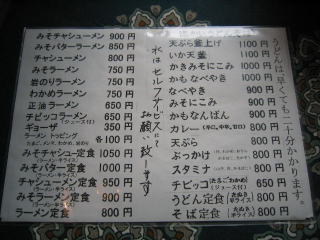 みそチャシューメン 900円
みそバターラーメン 850円
チャシューメン 800円
みそラーメン 750円
岩のりラーメン 750円
わかめラーメン 750円
正油ラーメン 650円
チビッコラーメン 650円
(ジュース付)
ギョーザ 350円
ラーメントッピング 各100円
みそチャシュー定食 1100円
(ラーメン・半ライス)
みそバター定食 1000円
(ラーメン・半ライス)
チャシューメン定食 950円
(ラーメン・半ライス)
みそラーメン定食 900円
(ラーメン・半ライス)
ラーメン定食 800円
水はセルフサービスにて
お願い致します
天ぷら釜上げ 1100円
いか天釜 1100円
かきみそにこみ 1000円
かもなべやき 1000円
なべやき 900円
みそにこみ 900円
かもなんばん 900円
カレー(辛口、中辛、甘口) 800円
天ぷら 800円
ぶっかけ 800円
スタミナ 800円
チビッコ(たまごわかめ) 650円
(ジュース付)
うどん定食 850円
そば定食 850円
うどんは早くても二十分かかります。